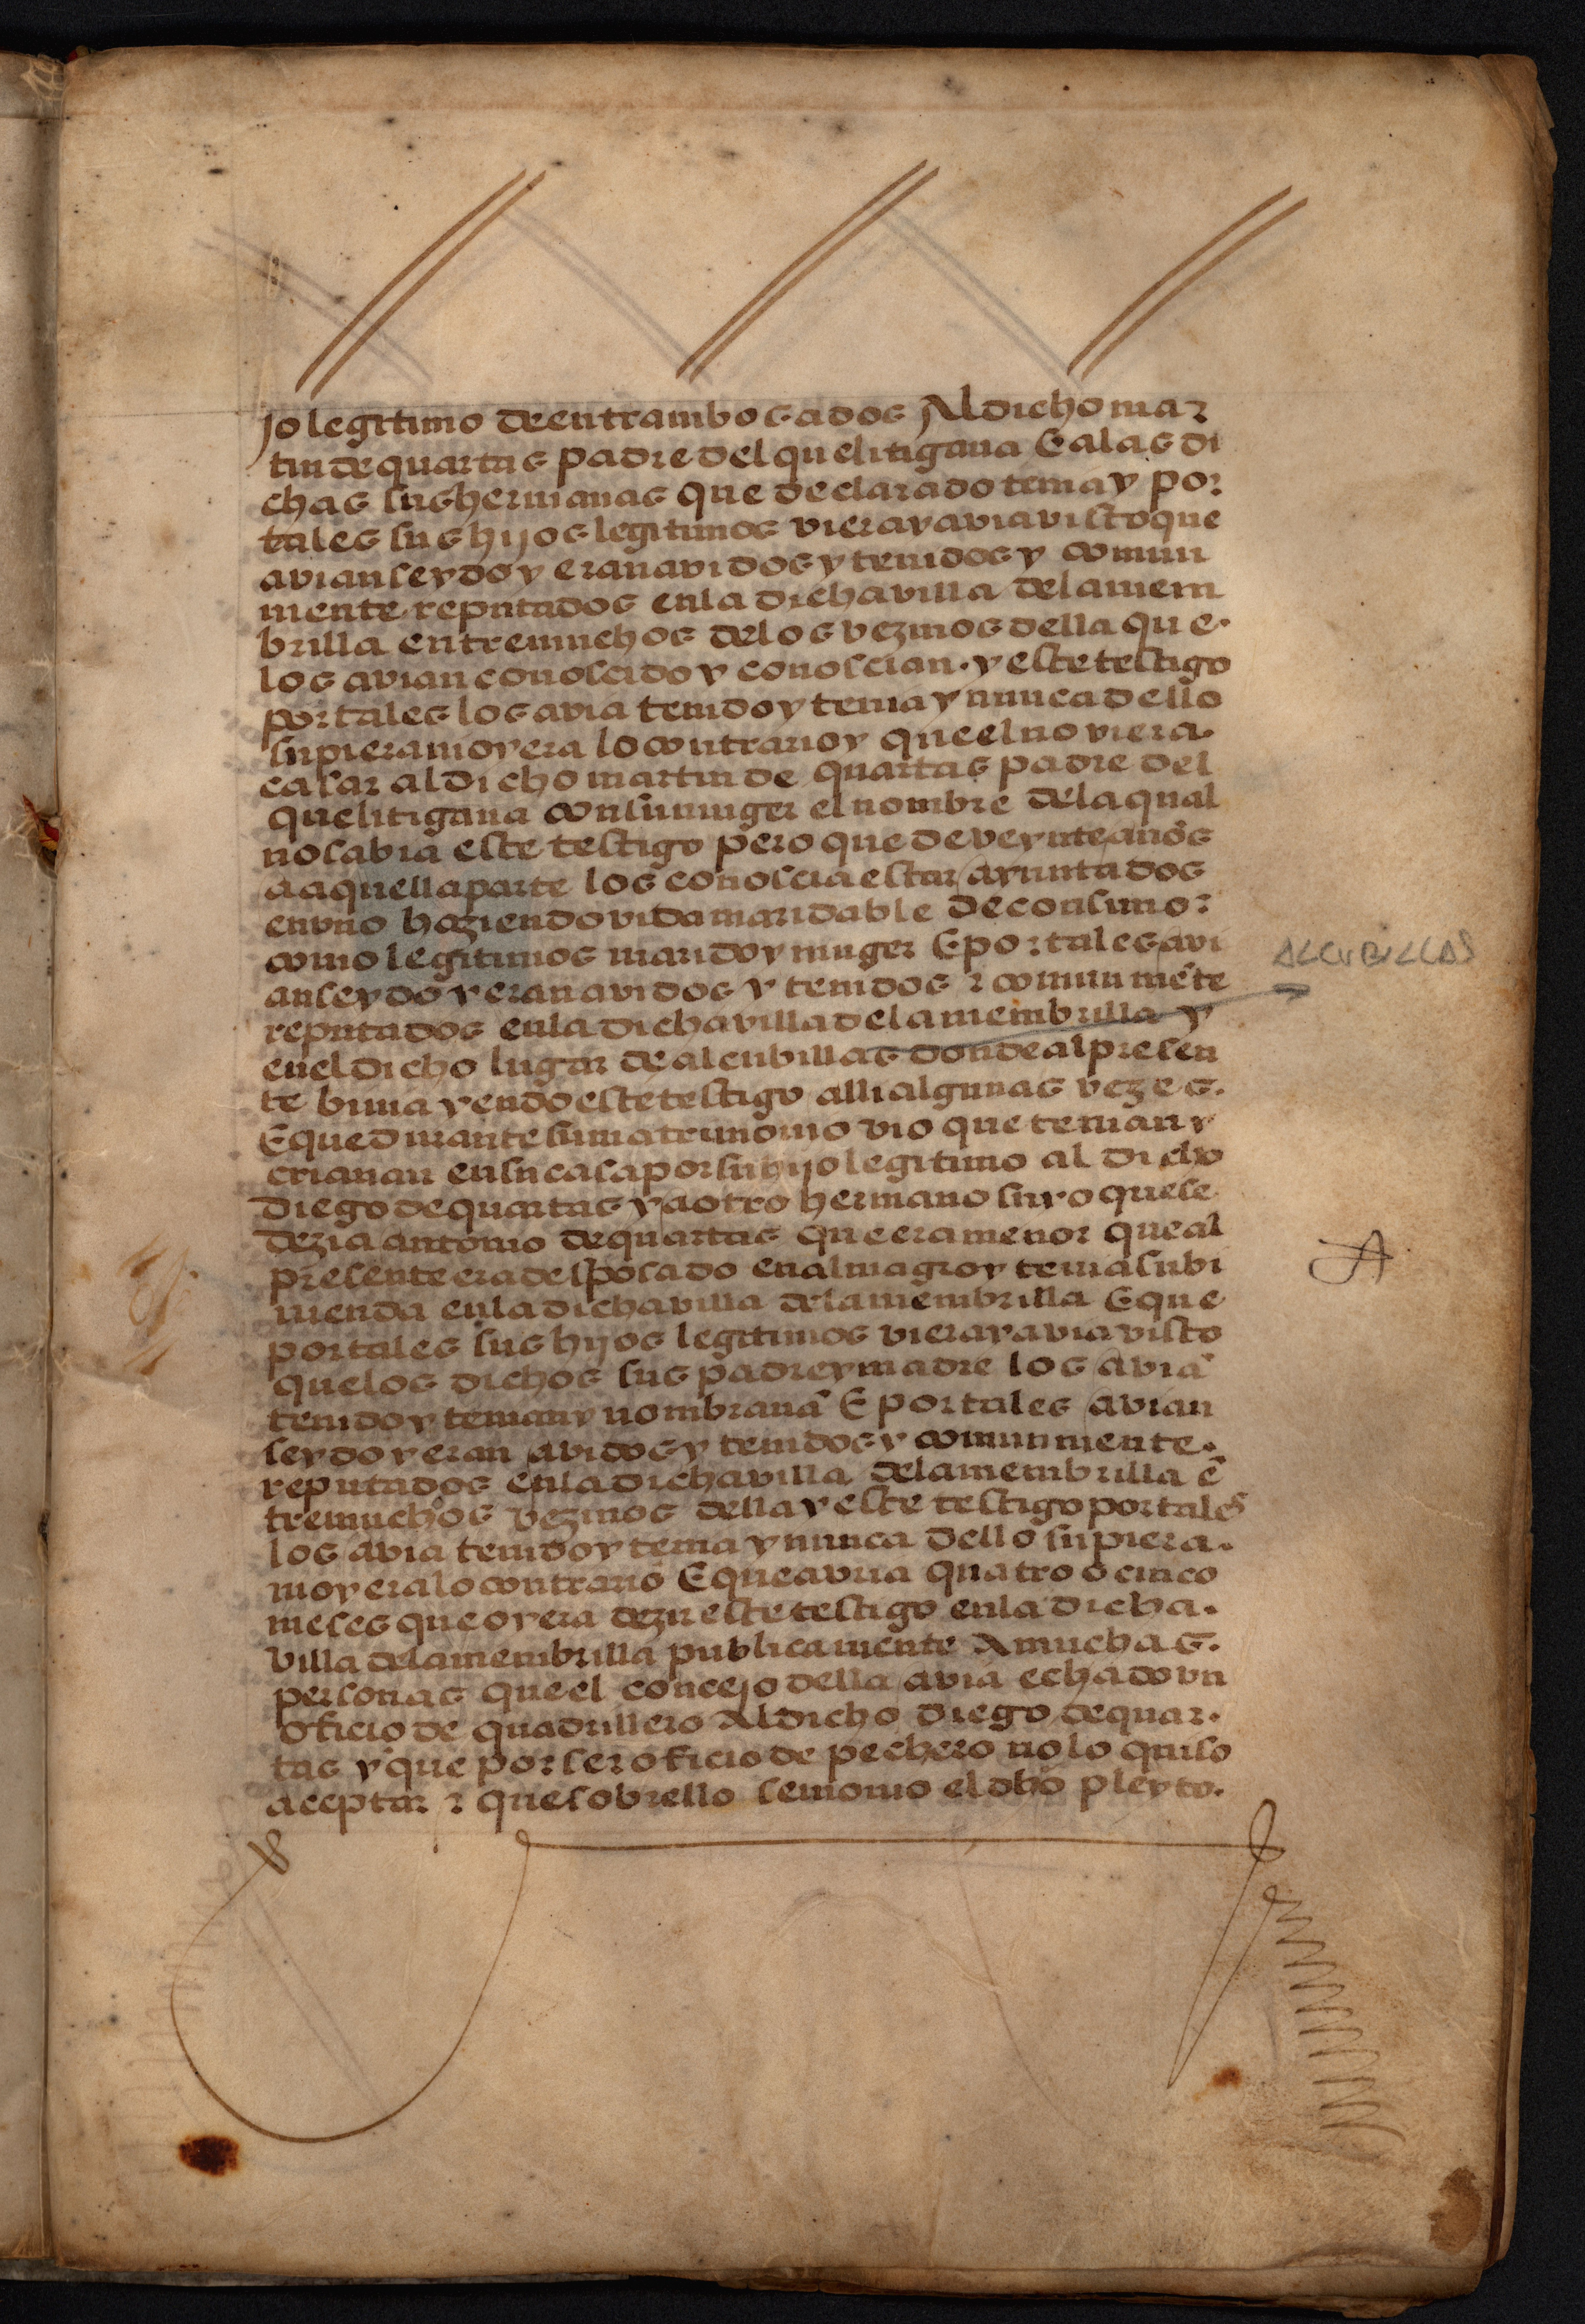 jo legitimo de entrambos ados Al dicho mar
tin de quartas padre del que litigaua E a las di
chas sus hermanas que declarado tenia y por
tales sus hijos legitimos viera y avia visto que
avian seydo y eran avidos y tenidos y comun
mente reputados en la dicha villa de la mem
brilla entre muchos de los vezinos della que.
los avian conoscido y conoscian. y este testigo
por tales los avia tenido y tenia y nunca dello
supiera ni oyera lo contrario y que el no viera.
casar al dicho martin de quartas padre del
que litigaua con su muger el nombre de la qual
no sabia este testigo pero que de veynte años
a aquella parte los conoscia estar ayuntados
en vno haziendo vida maridable de consuno:
como legitimos marido y muger E por tales avi
an seydo y eran avidos y tenidos ⁊ comun mẽte
reputados en la dicha villa de la membrilla y
en el dicho lugar de alcubillas donde al presen
te biuia yendo este testigo alli algunas vezes.
E que durante su matrimonio vio que tenian y
criauan en su casa por su hijo legitimo al dicho
Diego de quartas y a otro hermano suyo que se
dezia antonio de quartas que era menor que al
presente era desposado en almagro y tenia su bi
uienda en la dicha villa de la membrilla E que
por tales sus hijos legitimos viera y avia visto
que los dichos sus padre y madre los aviã
tenido y tenian y nombrauã E por tales avian
seydo y eran avidos y tenidos y comunmente.
reputados en la dicha villa de la membrilla ẽ
tre muchos vezinos della y este testigo por tales
los avia tenido y tenia y nunca dello supiera.
ni oyera lo contrario E que avria quatro o cinco
meses que oyera dezir este testigo en la dicha.
villa de la membrilla publicamente A muchas.
personas que el concejo della avia echado vn
oficio de quadrillero Al dicho Diego de quar.
tas y que por ser oficio de pechero no lo quiso
aceptar ⁊ que sobrello se mouio el dho pleyto.
ALCUBILLAS
A